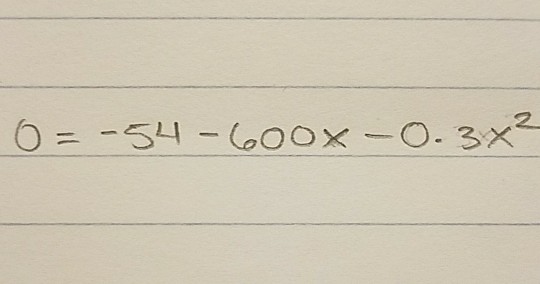 0 = -54 - 600x - 0.3x²